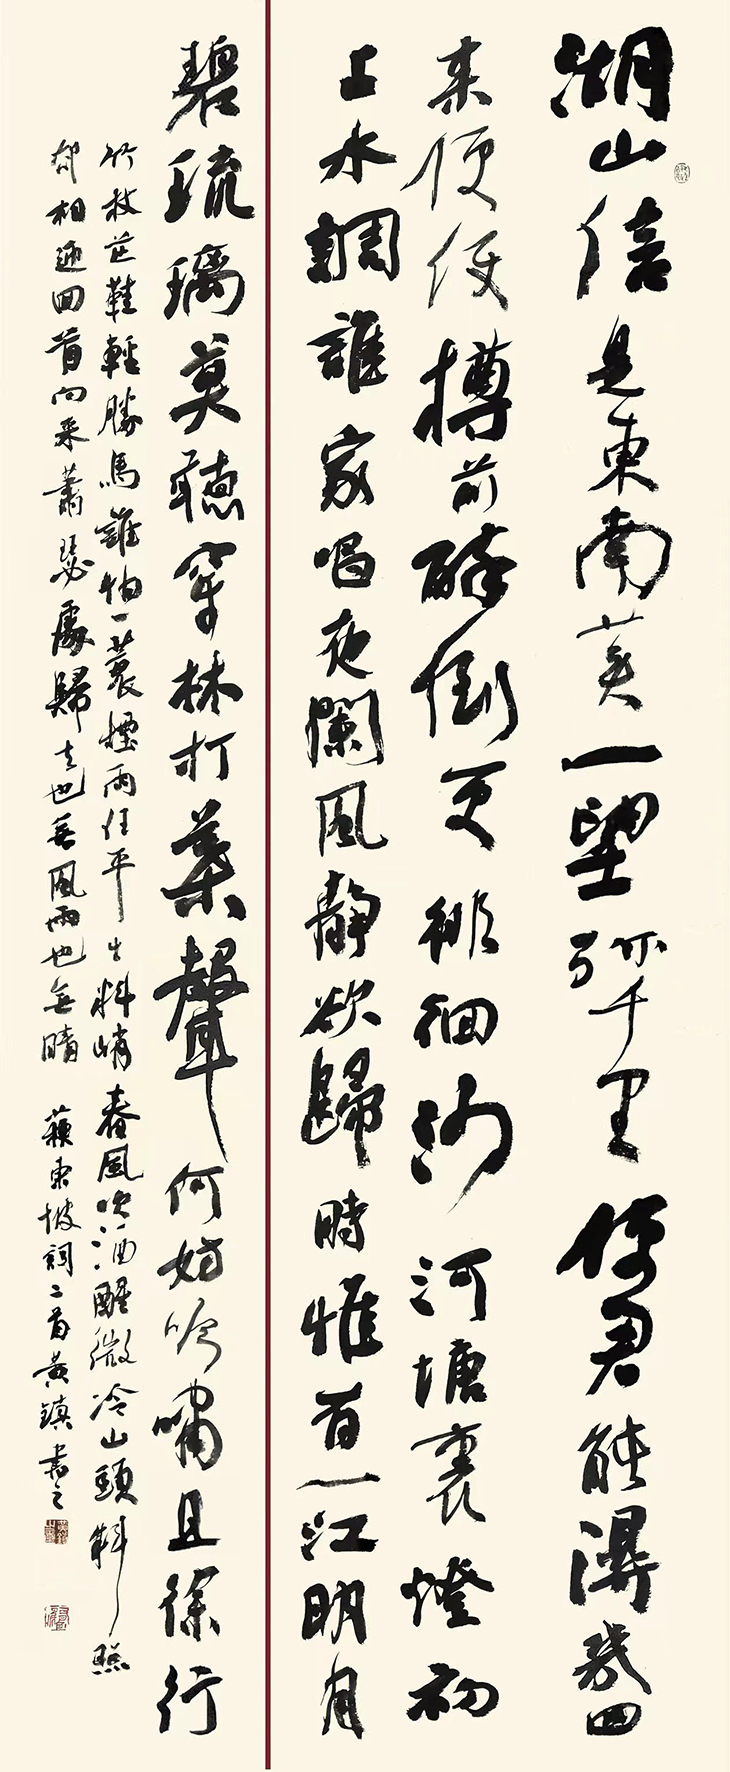 湖山信是東南美一望弥千里使君能得幾回
来便使樽前醉倒更徘徊沙河塘裏燈初
上水調誰家唱夜闌風静欲歸時惟有一江明月
碧琉璃莫聽穿林打葉聲何妨吟嘯且徐行
竹杖芒鞋輕勝馬誰怕一蓑煙雨任平生料峭春風吹酒醒微冷山頭斜照
却相迎回首向来蕭瑟處歸去也無風雨也無晴 蘇東坡詞二首黄鎮書之